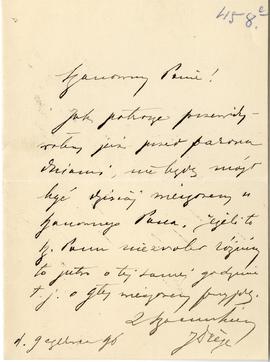 458 c
Szanowny Panie!
Jak potrosze przewidy-
wałem już przed paroma
dniami, nie będę mógł
być dzisiaj wieczorem u
Szanownego Pana. Jeżeli to
Sz. Panu nie zrobi różnicy
to jutro o tej samej godzinie
t. j. o 8ej wieczorem przyjdę.
Z szacunkiem
d. 9 czerwca 96